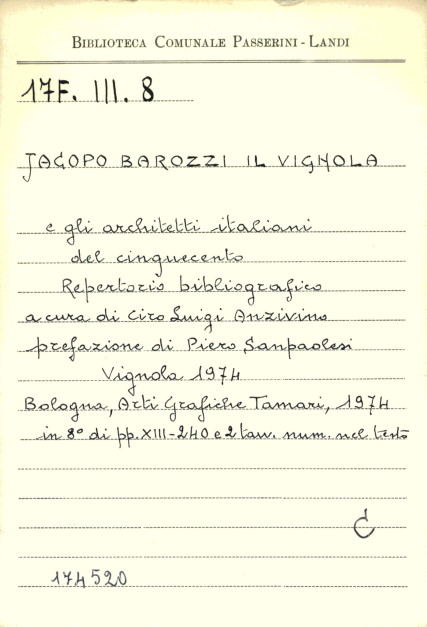 BIBLIOTECA COMUNALE PASSERINI - LANDI
17F. III. 8
JACOPO BAROZZI IL VIGNOLA
e gli architetti italiani
del cinquecento
Repertorio bibliografico
a cura di Ciro Luigi Anzivino
prefazione di Piero Sanpaolesi
Vignola 1974
Bologna, Arti Grafiche Tamari, 1974
in 8° di pp. XIII-240 e 2 tav. num. nel testo
174520